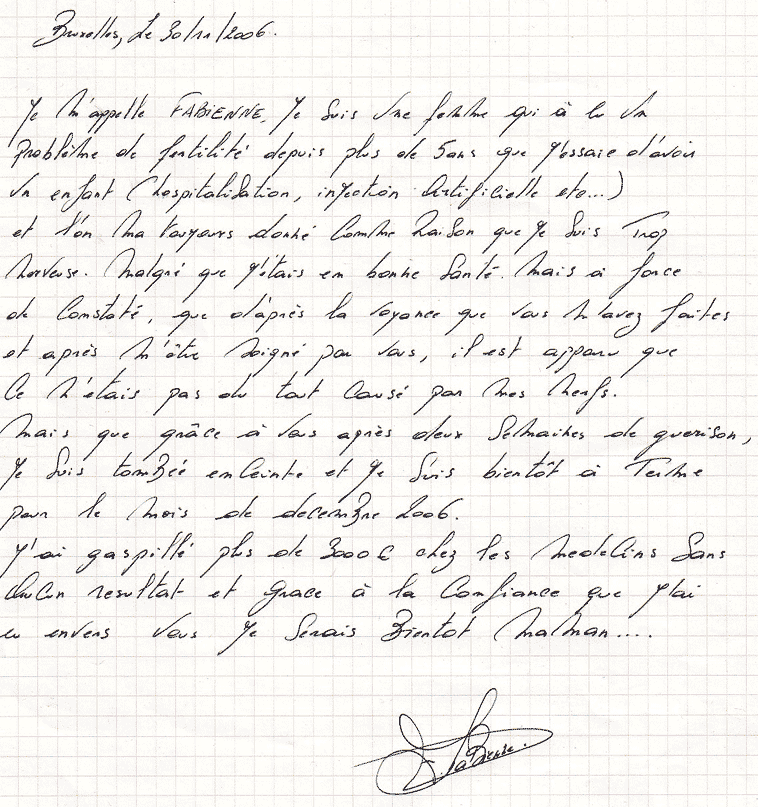 Bruxelles, Le 30/11/2006.
Je m'appelle FABIENNE, Je suis une femme qui à eu un
Problème de fertilité depuis plus de 5ans que j'essaie d'avoir
un enfant (hospitalisation, injection artificielle etc...)
et l'on ma toujours donné comme raison que je suis Trop
nerveuse. Malgré que j'étais en bonne santé. Mais à force
de constaté, que d'après la voyance que vous m'avez faites
et après m'être soigné par vous, il est apparu que
ce n'étais pas du tout causé par mes nerfs.
Mais que grâce à vous après deux semaines de guerison,
je suis tombée enceinte et je suis bientôt à Terme
pour le mois de decembre 2006.
J'ai gaspillé plus de 3000€ chez les medecins sans
aucun resultat et grace à la confiance que j'ai
eu envers vous je serais Bientot maman....